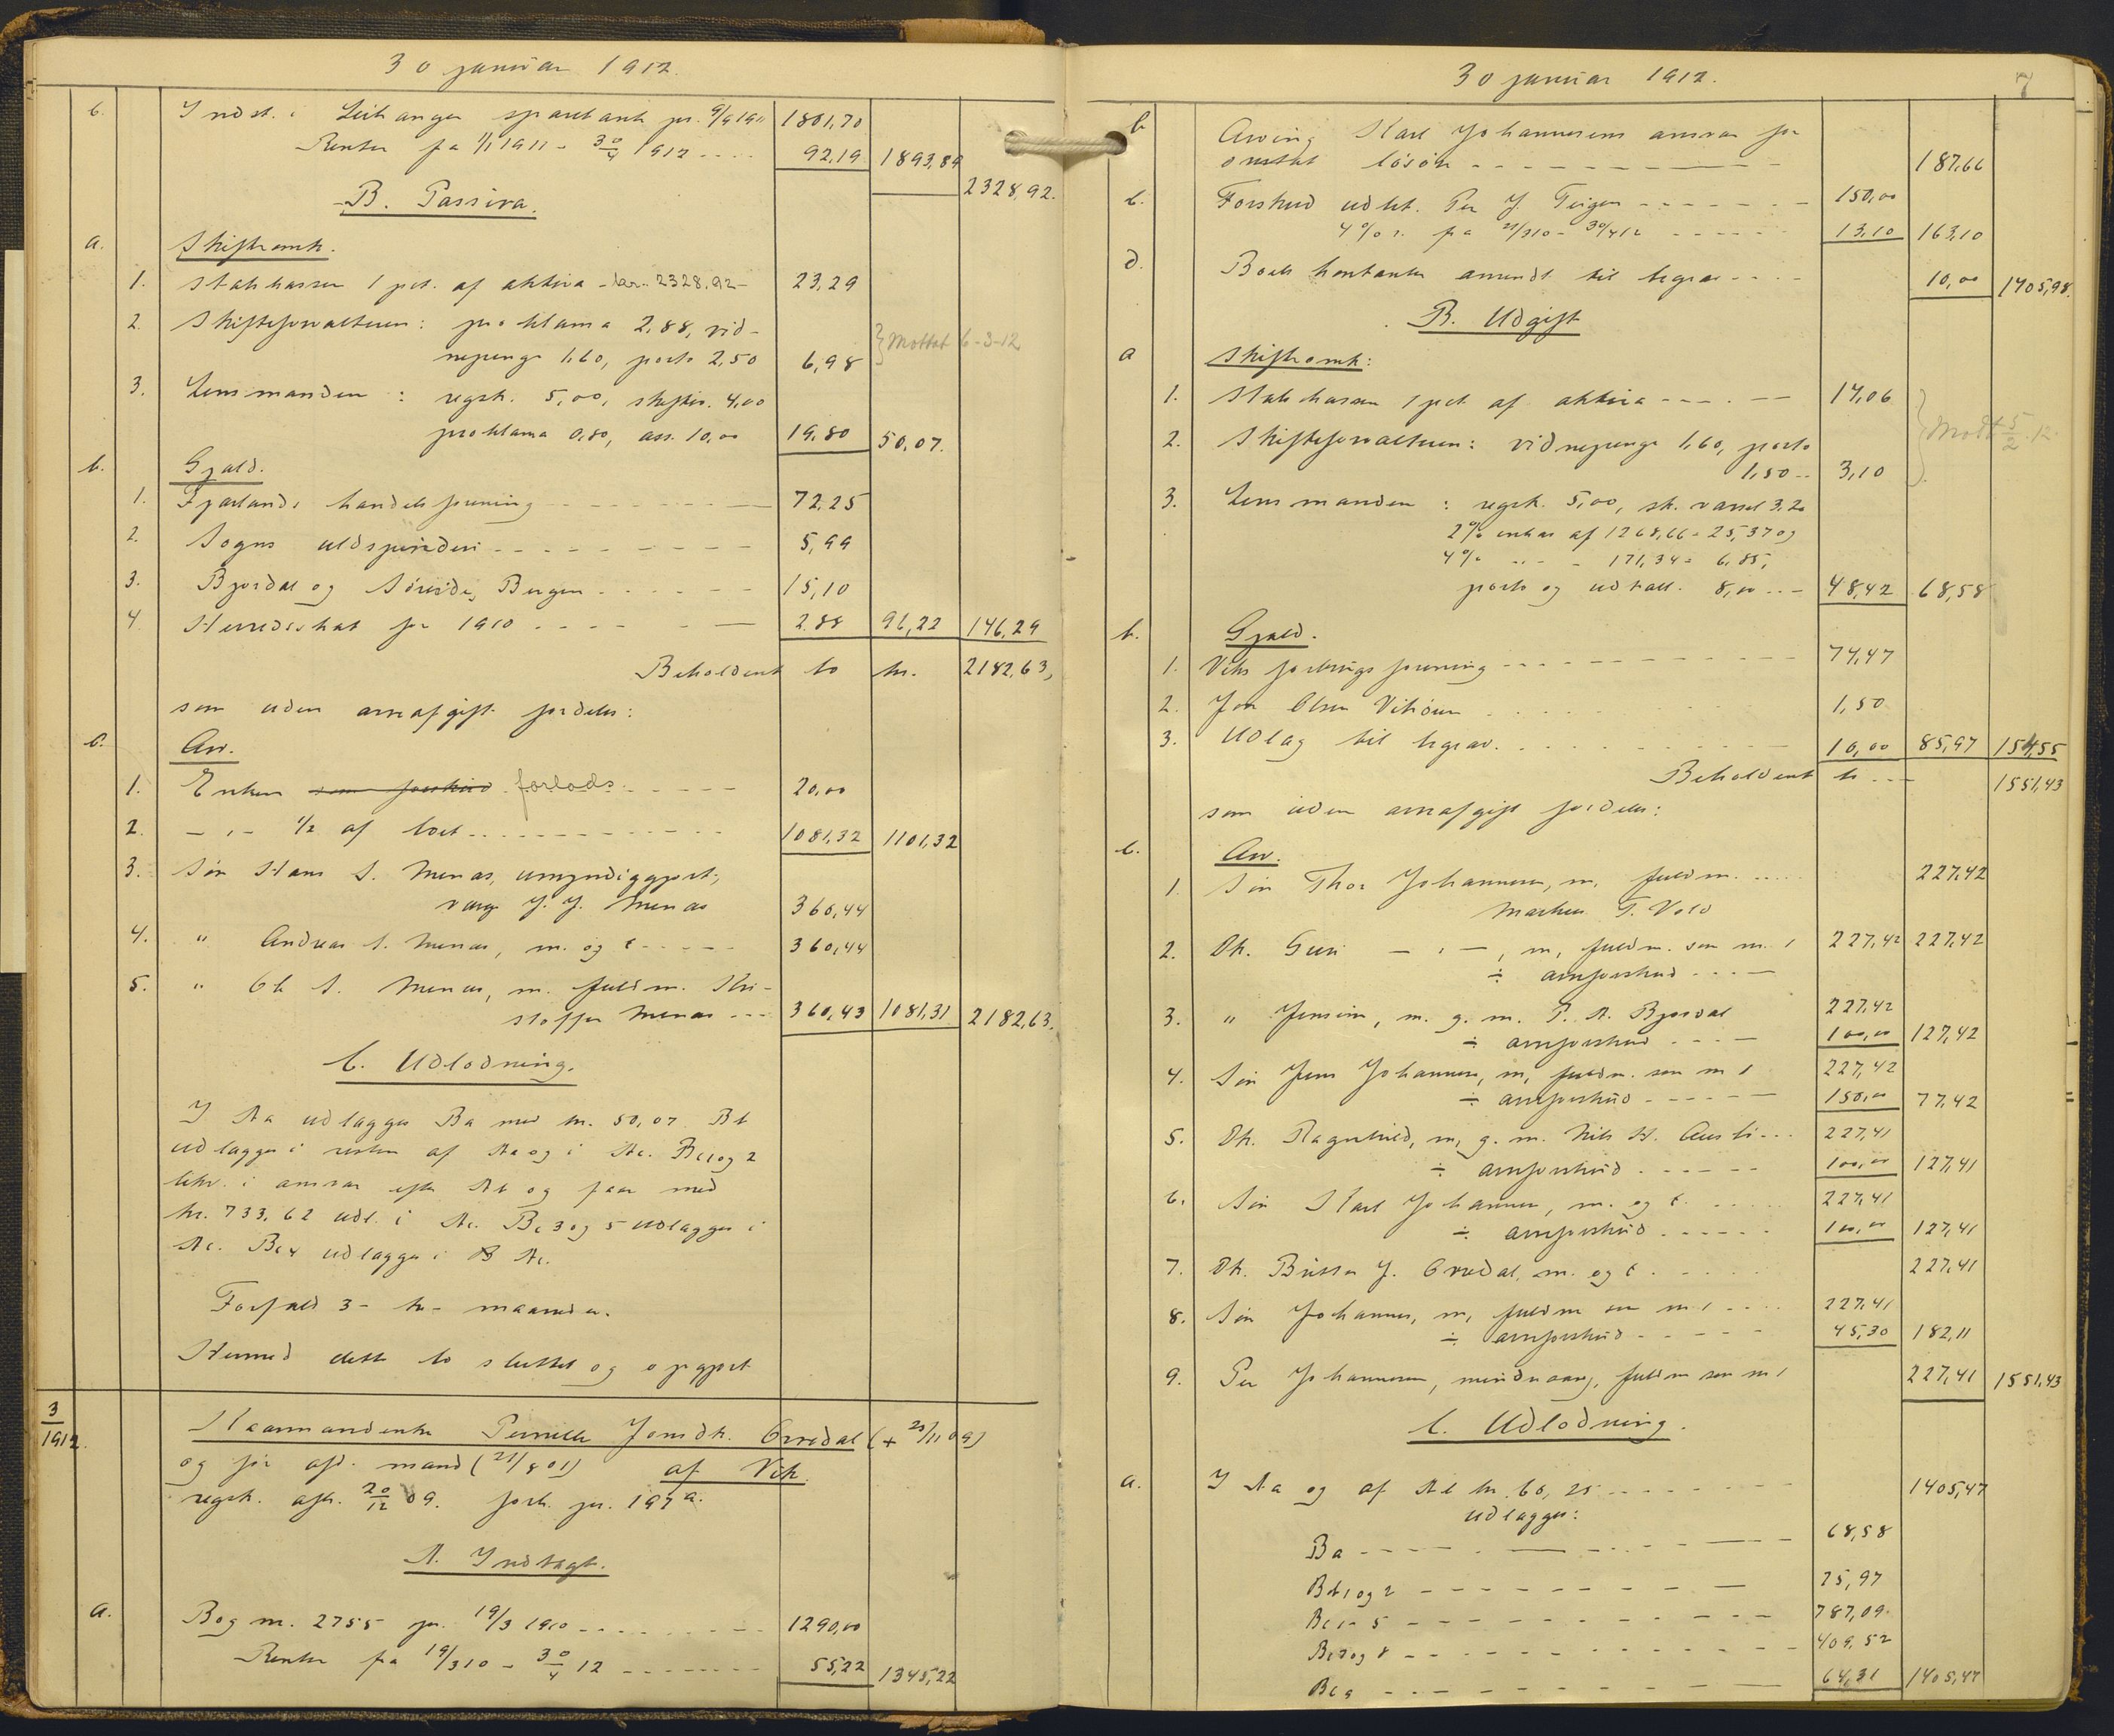 30 januar 1912.
c. Indst. i Leikanger sparebank pr. 9/9 1911 1801,70
Renter fra 1/1 1911 - 30/4 1912 92,19 1893,89
2328,92.
B. Passiva.
a. Skifteomk.
1. Statskassen 1 pct. af aktiva - kr. 2328.92 - 23,29
2. Skifteforvalteren: proklama 2,88, vid-
nepenge 1,60, porto 2,50 6,98
} Mottat 6-3-12
3. Lensmanden: regsk. 5,00, skifter. 4,00
proklama 0,80, ass. 10,00 19,80 50,07.
b. Gjæld.
1. Fjærlands handelsforening 72,25
2. Sogns uldspinderi 5,99
3. Bjordal og Søreide, Bergen 15,10
4. Herredsskat for 1910 2.88 96,22 146,29
Beholdent bo kr. 2182,63,
som uden arveafgift fordeles:
c. Arv.
1. Enken som forskud forlods 20,00
2. — " — 1/2 af boet 1081,32 1101,32
3. Søn Hans S. Menes, umyndiggjort,
verge J. J. Menes 360,44
4. " Andreas S. Menes, m. og t. 360,44
5. " Ole S. Menes, m. fuldm. Kri-
stoffer Menes 360,43 1081,31 2182,63.
C. Udlodning.
I Aa udlægges Ba med kr. 50,07. Bb
udlægges i resten af Aa og i Ac. Bc1 og 2
likv. i ansvar efter Ab og faar med
kr. 733,62 udl. i Ac. Bc 3 og 5 udlægges i
Ac. Bc4 udlægges i B Ac.
Forfald 3 - tre - maaneder.
Hermed dette bo sluttet og opgjort
3/1912. Kaarmandenke Pernille Jonsdtr. Orvedal (+ 23/11 09)
og før afd. mand (21/8 01) af Vik.
regsk. afh. 20/12 09. fork. pr. 197 a.
A. Indtægt.
a. Bog nr. 2755 pr. 19/3 1910 1290,00
Renter fra 19/3 10 - 30/4 12 55,22 1345,22
30 januar 1912. 7
b. Arving Karl Johannesens ansvar for
omtat løsøre 187,66
c. Forskud udbet. Per J. Teigen 150,00
4% r. fra 21/3 10 - 30/4 12 13,10 163,10
d. Boets kontanter anvendt til begrav. 10,00 1705,98.
B. Udgift
a skifteomk:
1. Statskassen 1 pct. af aktiva 17,06
2. Skifteforvalteren: vidnepenge 1,60, porto
1,50 3,10
} Modt 5/2.12.
3. Lensmanden: regsk. 5,00, sk. varsel 3,20
2% inkas af 1268,66 = 25,37 og
4% " " - 171,34 = 6,85,
porto og udtall. 8,00 48,42 68,58
b. Gjæld.
1. Viks forbrugsforening 74,47
2. Jon Olsen Vikøren 1,50
3. Udlæg til begrav. 10,00 85,97 154,55
Beholdent bo 1551,43
som uden arveafgift fordeles:
c. Arv.
1. Søn Thor Johannesen, m, fuldm. 227,42
Markus T. Vold
2. Dtr. Guri — " —, m, fuldm. som nr. 1 227,42 227,42
÷ arveforskud
3. " Jensine, m. g. m. P. A. Bjordal 227,42
÷ arveforskud 100,00 127,42
4. Søn Jens Johannesen, m, fuldm. som nr 1 227,42
÷ arveforskud 150,00 77,42
5. Dtr. Ragnhild, m, g. m. Nils H. Ausli 227,41
÷ arveforskud 100,00 127,41
6. Søn Karl Johannesen, m. og t. 227,41
÷ arveforskud 100,00 127,41
7. Dtr. Britta J. Orvedal, m. og t 227,41
8. Søn Johannes, m, fuldm som nr. 1 227,41
÷ arveforskud 45,30 182,11
9. Per Johannesen, mindreaarig, fuldm som nr 1 227,41 1551,43
C. Udlodning.
a. I Aa og af Ab kr. 60,25 1405,47
udlægges:
Ba 68,58
Bb1 og 2 75,97
Bc1 - 5 787,09
Bc7 og 8 409,52
Bc9 64,31 1405,47